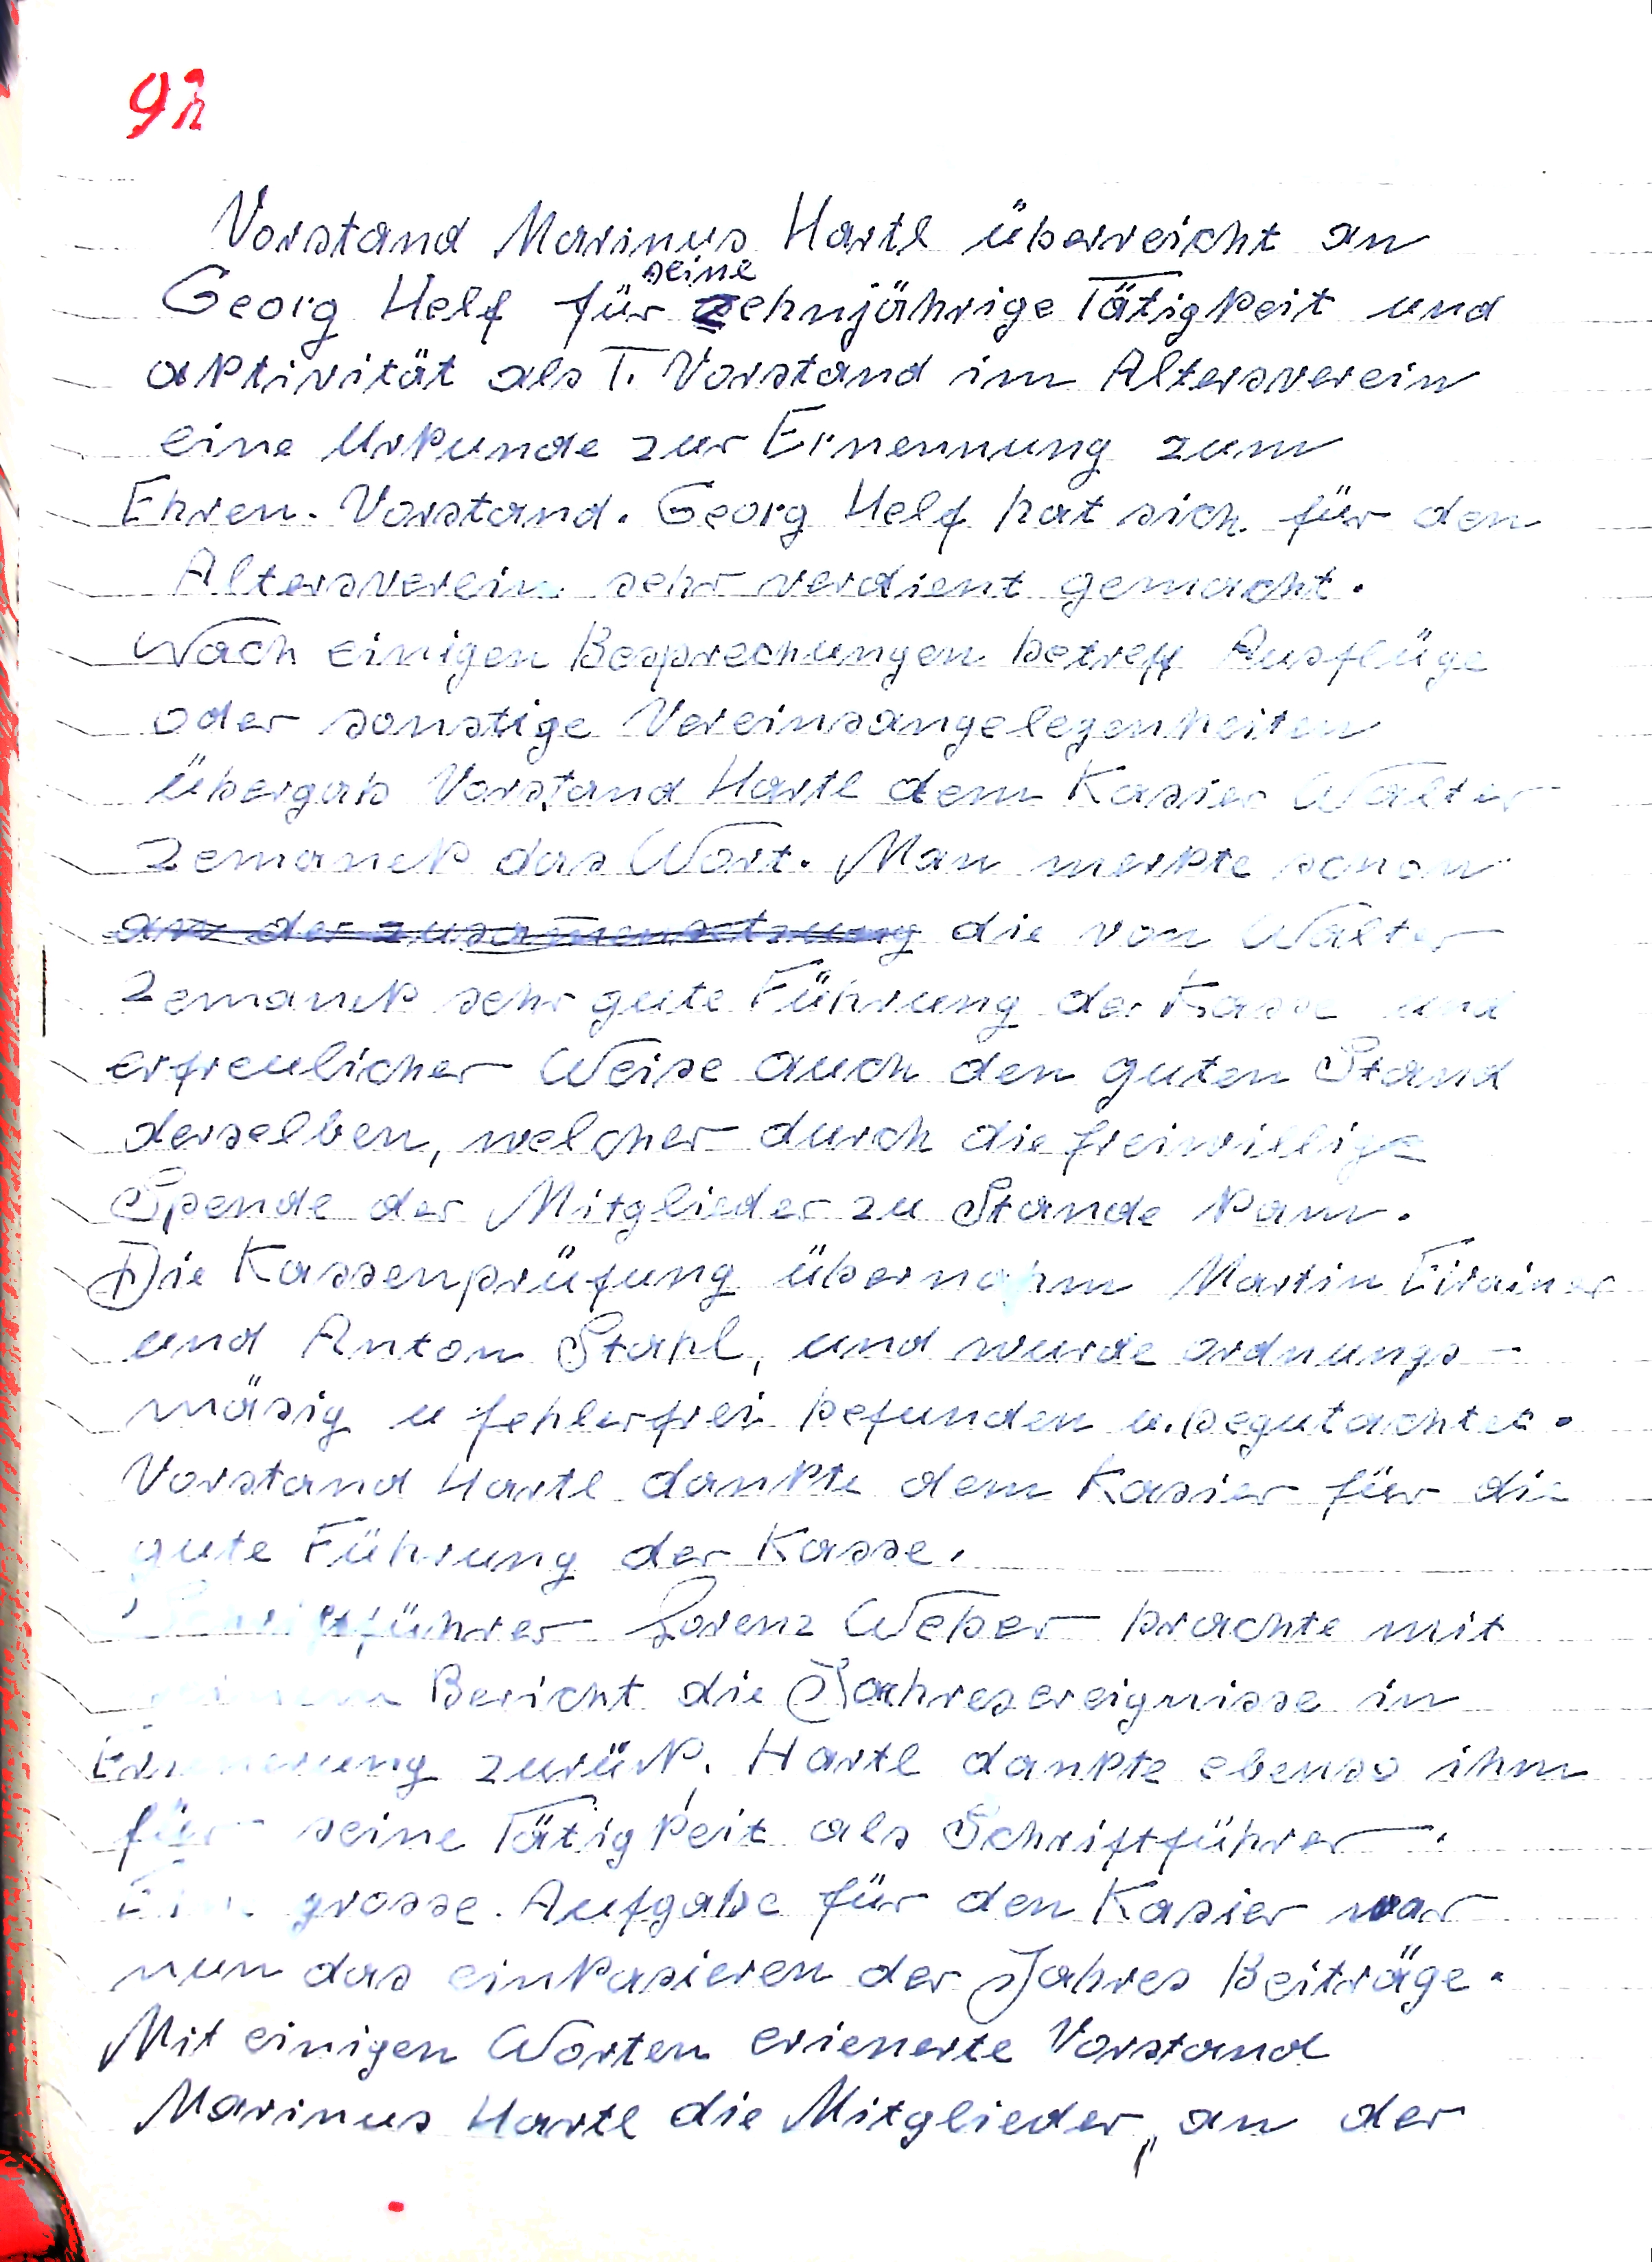 92
Vorstand Marinus Hartl überreicht an
Georg Helf für seine zehnjährige Tätigkeit und
aktivität als I. Vorstand im Altersverein
eine Urkunde zur Ernennung zum
Ehren-Vorstand. Georg Helf hat sich für den
Altersverein sehr verdient gemacht.
Nach einigen Besprechungen betreff Ausflüge
oder sonstige Vereinsangelegenheiten
übergab Vorstand Hartl dem Kasier Walter
Zemanek das Wort. Man merkte schon
an der zusam̄ensetzung die von Walter
Zemanek sehr gute Führung der Kasse und
erfreulicher Weise auch den guten Stand
derselben, welcher durch die freiwillige
Spende der Mitglieder zu Stande kam.
Die Kassenprüfung übernahm Martin
und Anton Stahl, und wurde ordnungs-
mäsig u fehlerfrei befunden u. begutachtet.
Vorstand Hartl dankte dem Kasier für die
gute Führung der Kasse.
Schriftführer Lorenz Weber brachte mit
seinem Bericht die Jahresereignisse in
Erinnerung zurük. Hartl dankte ebenso ihm
für seine Tätigkeit als Schriftführer.
Eine grosse Aufgabe für den Kasier war
nun das einkasieren der Jahres Beiträge.
Mit einigen Worten erienerte Vorstand
Marinus Hartl die Mitglieder, an der